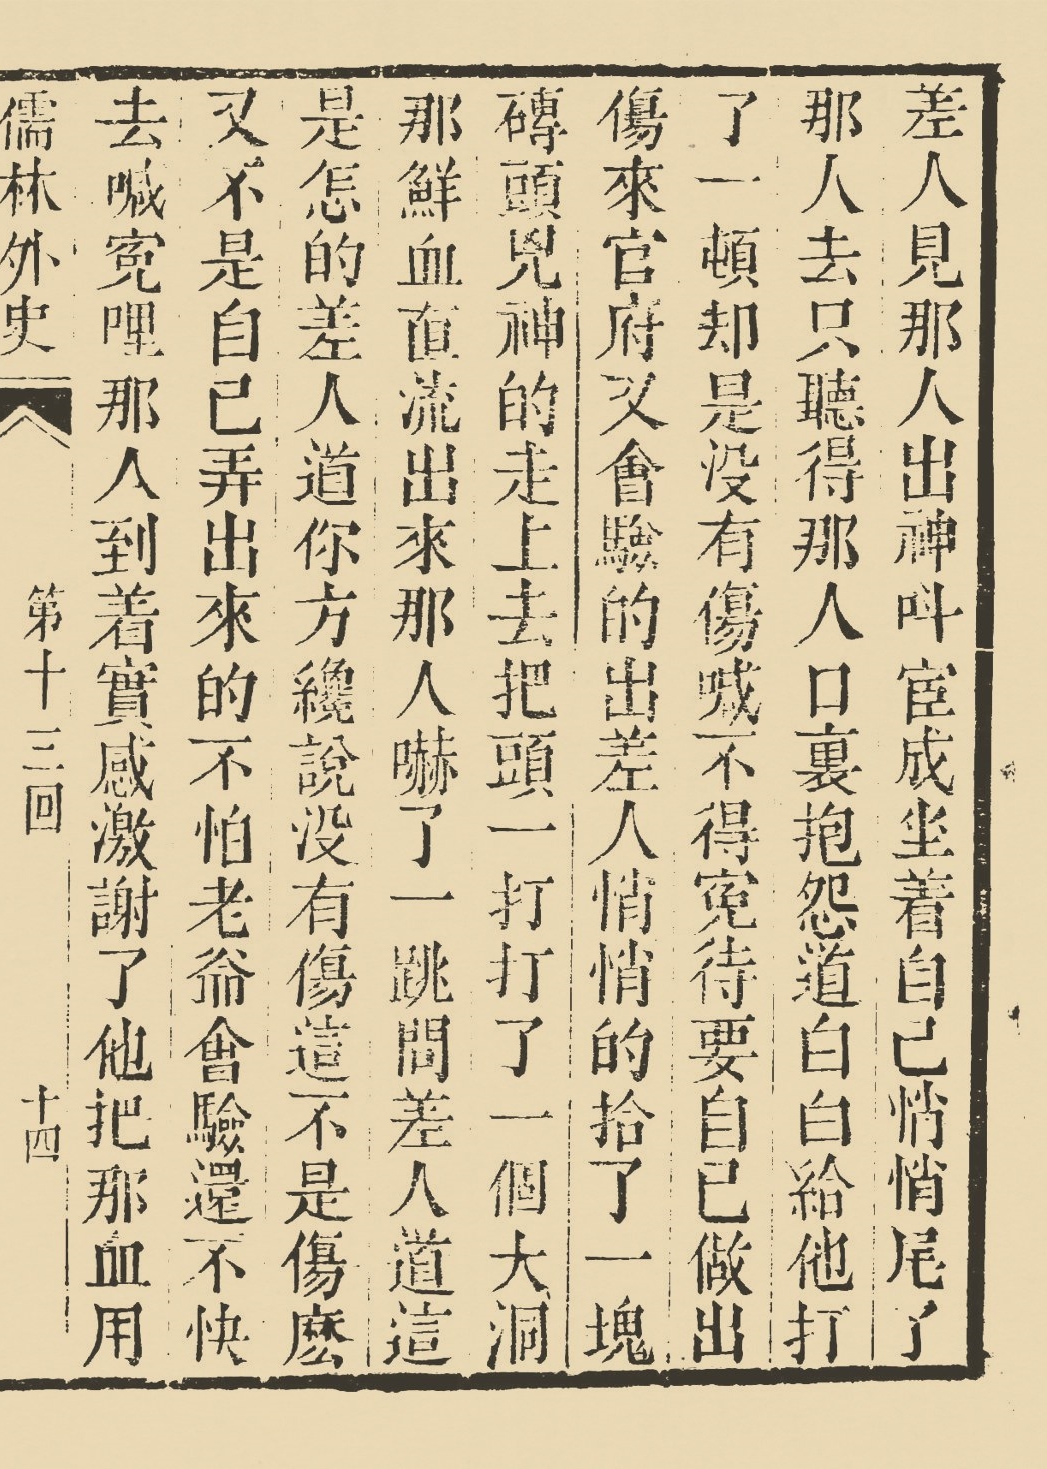 差人見那人出神叫宦成坐着自己悄悄尾了
那人去只聽得那人口裏抱怨道白白給他打
了一頓却是没有傷喊不得寃待要自已做出
傷來官府又會驗的出差人悄悄的拾了一塊
磚頭兇神的走上去把頭一打打了一個大洞
那鮮血直流出來那人嚇了一跳問差人道這
是怎的差人道你方纔說没有傷這不是傷麽
又不是自已弄出來的不怕老爺會驗還不快
去喊寃哩那人到着實感激謝了他把那血用
儒林外史 第十三回 十四